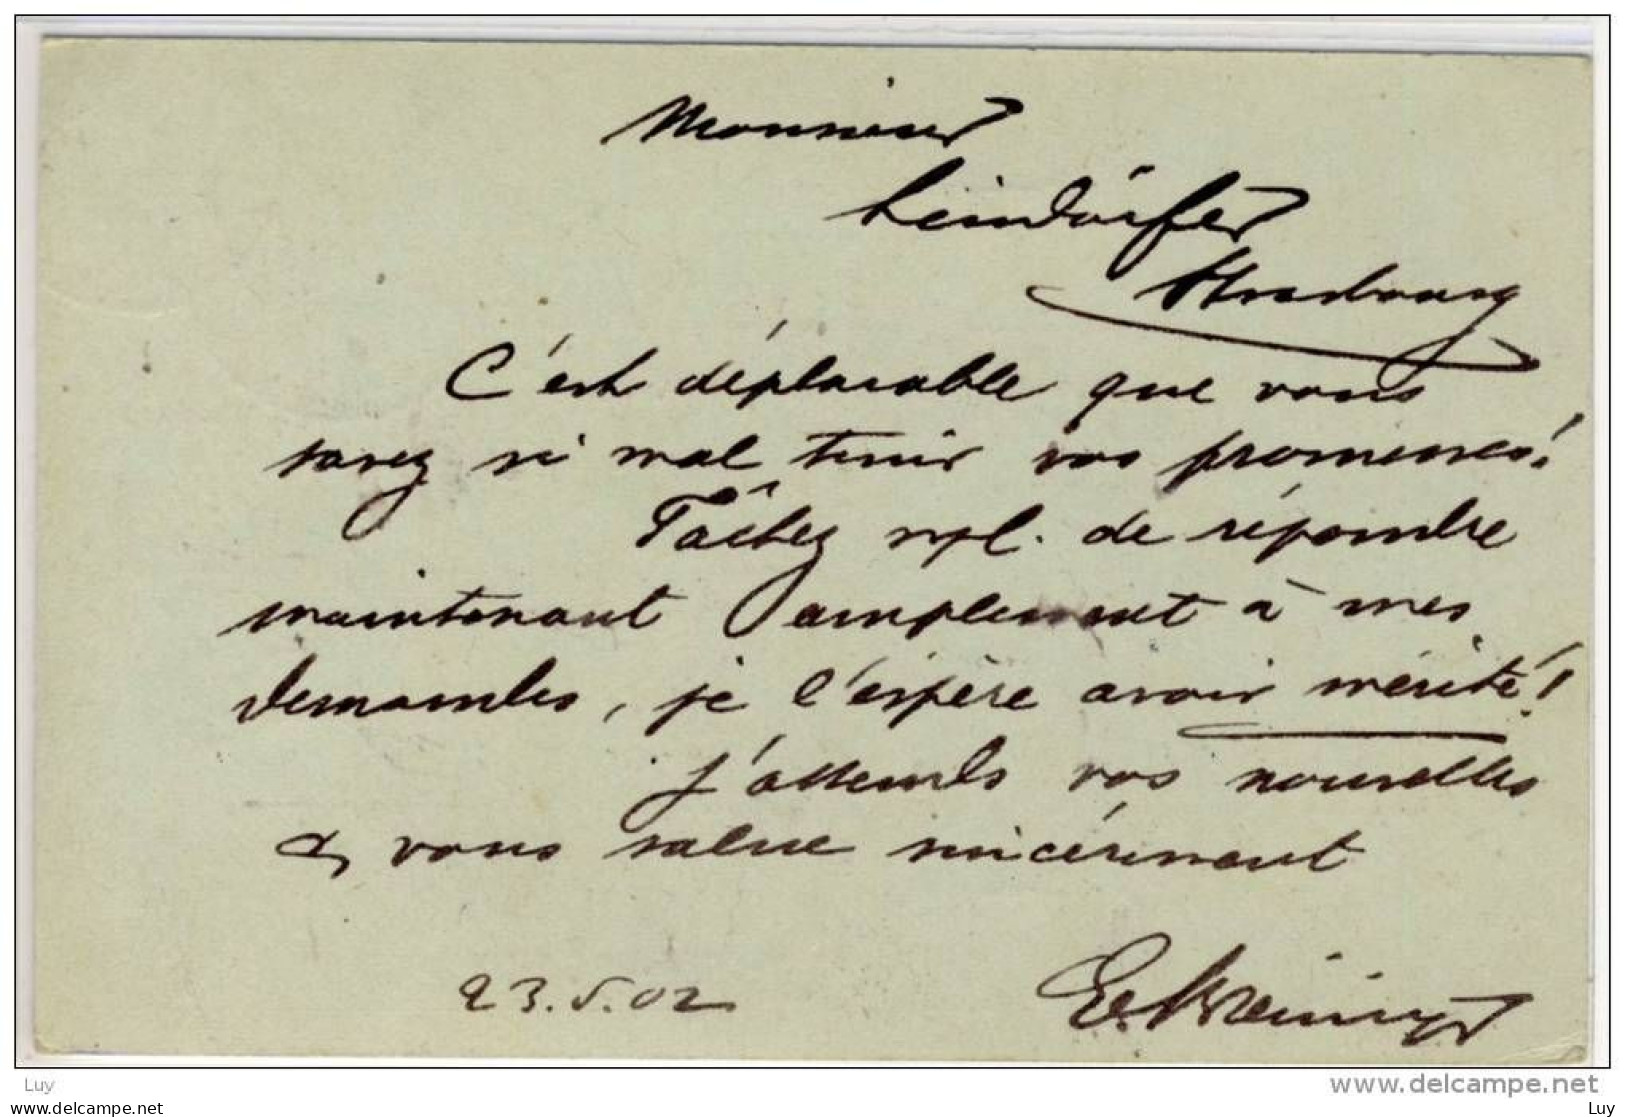 Monsieur
Leindörfer
Strasbourg
C'est déplorable que vous
savez si mal tenir vos promesses!
Tâchez svpl. de répondre
maintenant amplement à mes
demandes, je l'espère avoir mérité!
J'attends vos nouvelles
& vous salue sincèrement
23.5.02
E.
Luy
www.delcampe.net
Luy
Luy